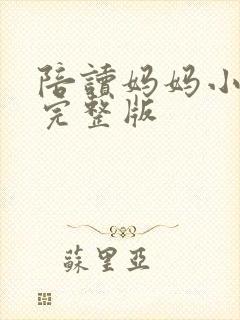 陪讀妈妈小
完整版
蘇里亞